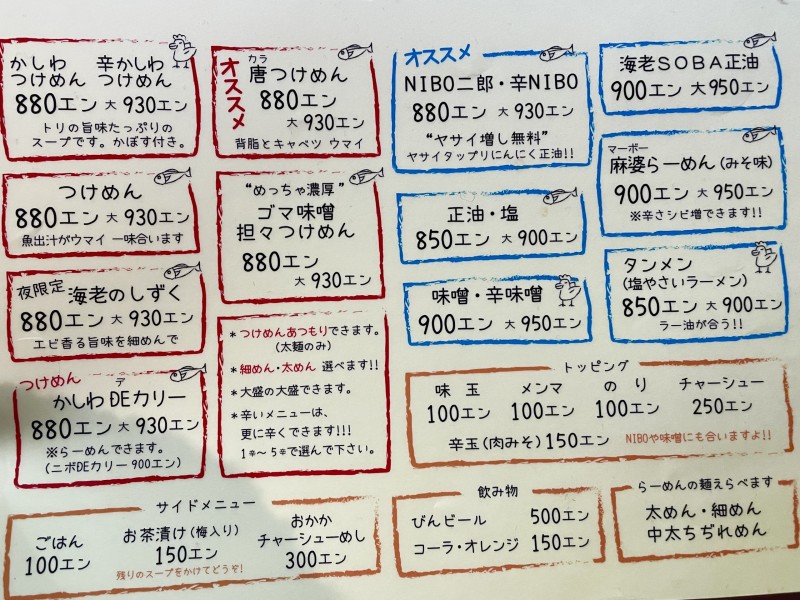 かしわ 辛かしわ
つけめん つけめん
880エン 大 930エン
トリの旨味たっぷりの
スープです。かぼす付き。
つけめん
880エン 大 930エン
魚出汁がウマイ 一味合います
夜限定 海老のしずく
880エン 大 930エン
エビ香る旨味を細めんで
つけめん
デ
かしわDEカリー
880エン 大 930エン
※らーめんできます。
(ニボDEカリー 900エン)
オススメ
カラ
唐つけめん
880エン
大 930エン
背脂とキャベツ ウマイ
“めっちゃ濃厚”
ゴマ味噌
担々つけめん
880エン
大 930エン
*つけめんあつもりできます。
(太麺のみ)
*細めん・太めん 選べます!!
*大盛の大盛できます。
*辛いメニューは、
更に辛くできます!!!
1辛〜5辛で選んで下さい。
オススメ
NIBO二郎・辛NIBO
880エン 大 930エン
“ヤサイ増し無料”
ヤサイタップリにんにく正油!!
正油・塩
850エン 大 900エン
味噌・辛味噌
900エン 大 950エン
海老SOBA正油
900エン 大 950エン
マーボー
麻婆らーめん(みそ味)
900エン 大 950エン
※辛さシビ増できます!!
タンメン
(塩やさいラーメン)
850エン 大 900エン
ラー油が合う!!
トッピング
味玉 メンマ のり チャーシュー
100エン 100エン 100エン 250エン
辛玉(肉みそ)150エン NIBOや味噌にも合いますよ!!
サイドメニュー
ごはん
100エン
お茶漬け(梅入り)
150エン
残りのスープをかけてどうぞ!
おかか
チャーシューめし
300エン
飲み物
びんビール 500エン
コーラ・オレンジ 150エン
らーめんの麺えらべます
太めん・細めん
中太ちぢれめん